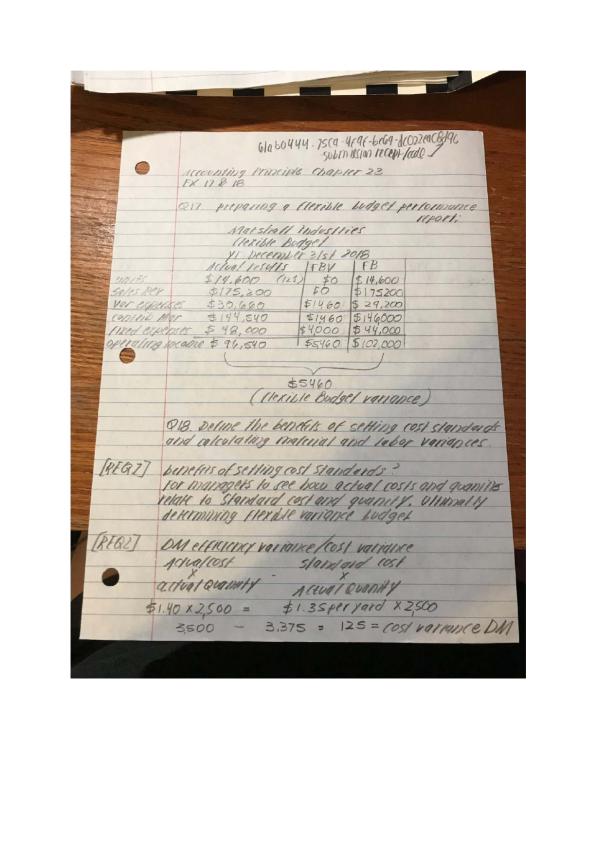 submission receipt/code
Accounting Principls Chapter 23
EX 17 & 18
Q17. preparing a flexible budget performance
report:
Marshall industries
flexible Budget
YE December 31st 2018
Actual results FBV FB
units $14,600 $0 $14,600
Sales Rev $175,200 $0 $175200
Var expenses $30,660 $1460 $29,200
Contrib Mar $144,540 $1460 $146000
fixed expenses $48,000 $4,000 $44,000
operating income $96,540 $5460 $102,000
$5460
(flexible Budget variance)
Q18. Define the benefits of setting cost standards
and calculating material and labor variances.
benefits of setting cost standards?
for managers to see how actual costs and quantities
relate to standard cost and quantity. Ultimatly
determining flexible variance budget
[REQ2] DM efficiency variance/cost variance
Actual cost standard cost
x - x
actual Quantity Actual Quantity
$1.40 x 2,500 = $1.35 per yard x 2,500
3,500 - 3,375 = 125 = cost variance DM